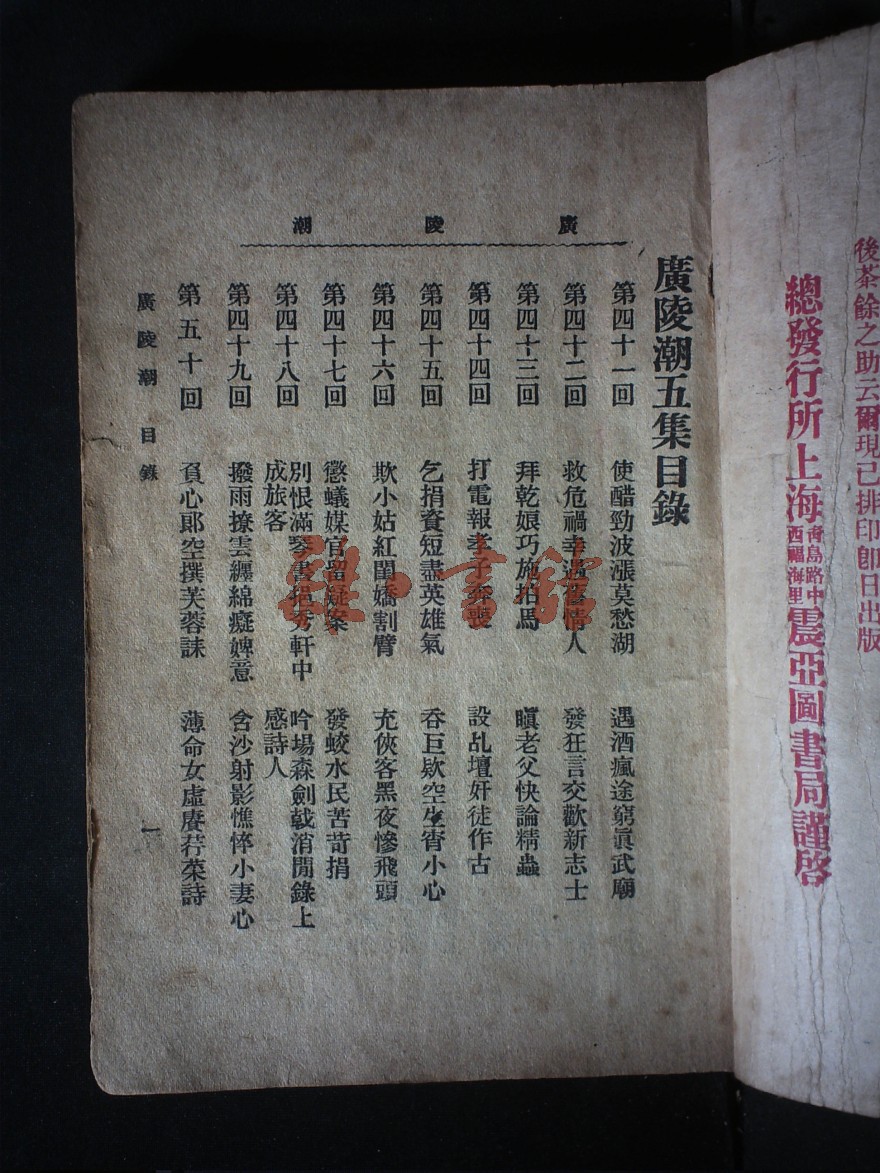 後茶餘之助云爾現已排印卽日出版
總發行所上海靑島路中西福海里震亞圖書局謹啓
廣陵潮
廣陵潮五集目錄
第四十一回 使醋勁波漲莫愁湖 遇酒瘋途窮眞武廟
第四十二回 救危禍幸遇舊情人 發狂言交歡新志士
第四十三回 拜乾娘巧施拍馬 瞋老父快論精蟲
第四十四回 打電報孝子奔喪 設乩壇奸徒作古
第四十五回 乞捐資短盡英雄氣 吞巨欵空生宵小心
第四十六回 欺小姑紅閨嬌割臂 充俠客黑夜慘飛頭
第四十七回 懲蟻媒官留疑案 發蛟水民苦苛捐
第四十八回 別恨滿琴書挹秀軒中成旅客 吟場森劍戟消閒錄上感詩人
第四十九回 撥雨撩雲纏綿癡婢意 含沙射影憔悴小妻心
第五十回 負心郞空撰芙蓉誄 薄命女虛賡荇菜詩
廣陵潮 目錄 一
雜·書館